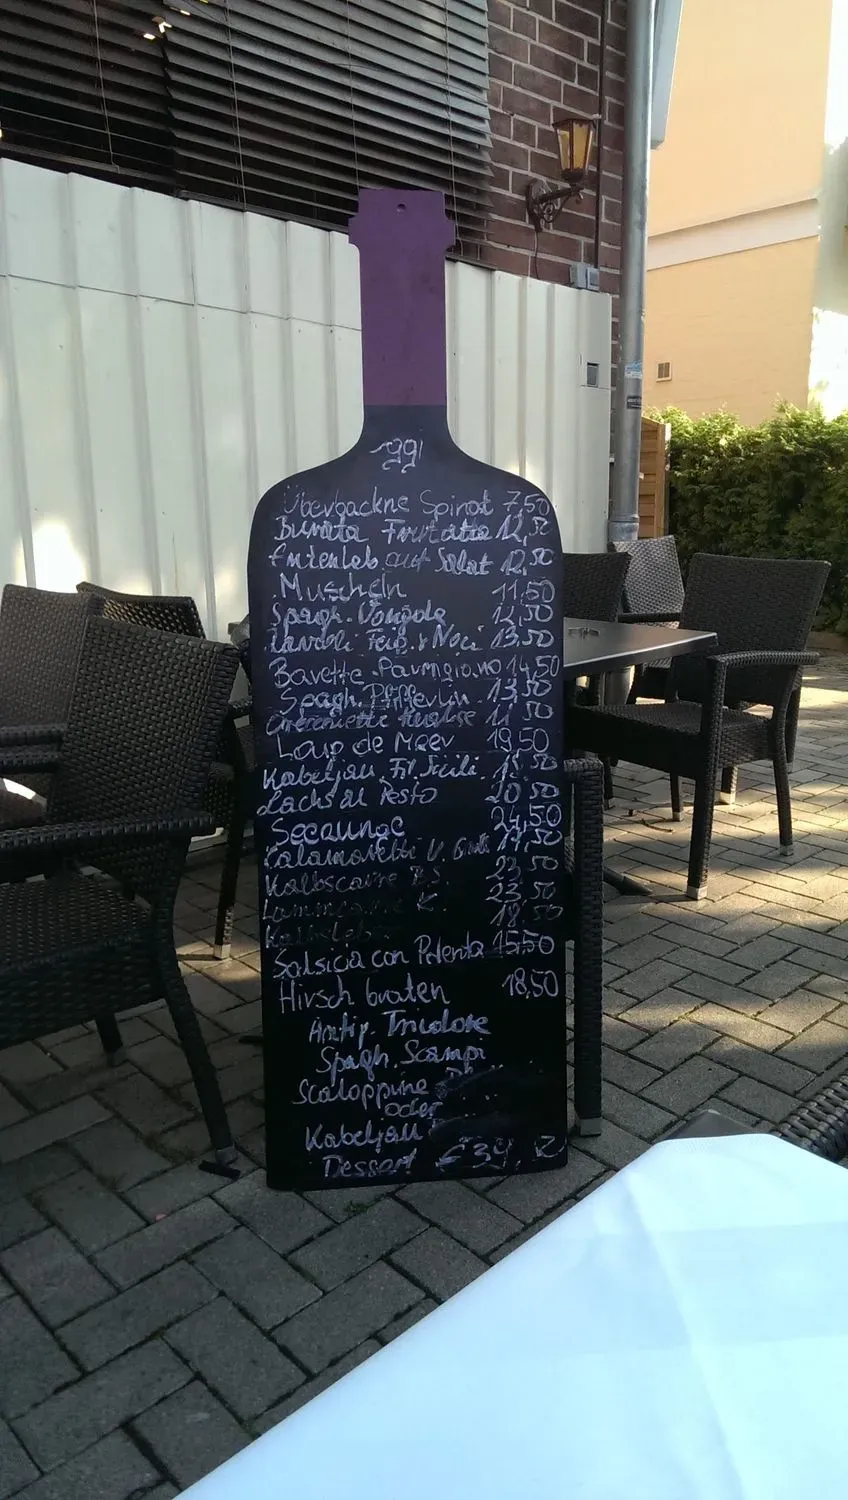 Überbackne Spinat 7,50
Burrata Fruttata 12,50
Entenleb auf Salat 12,50
Muscheln 11,50
Spagh. Vongole 12,50
Ravioli Feig. + Noci 13,50
Bavette Parmigiano 14,50
Spagh. Pfifferlin 13,50
Orecchiette 11,50
Loup de Meer 19,50
Kabeljau Fil. Sicili. 50
Lachs al Pesto 20,50
Seeaunge 24,50
Calamaretti v. Grill 17,50
23,50
K. 23,50
18,50
Salsicia con Polenta 15,50
Hirschbraten 18,50
Antip. Tricolore
Spagh. Scampi
Scaloppine
oder
Kabeljau
Dessert € 39,